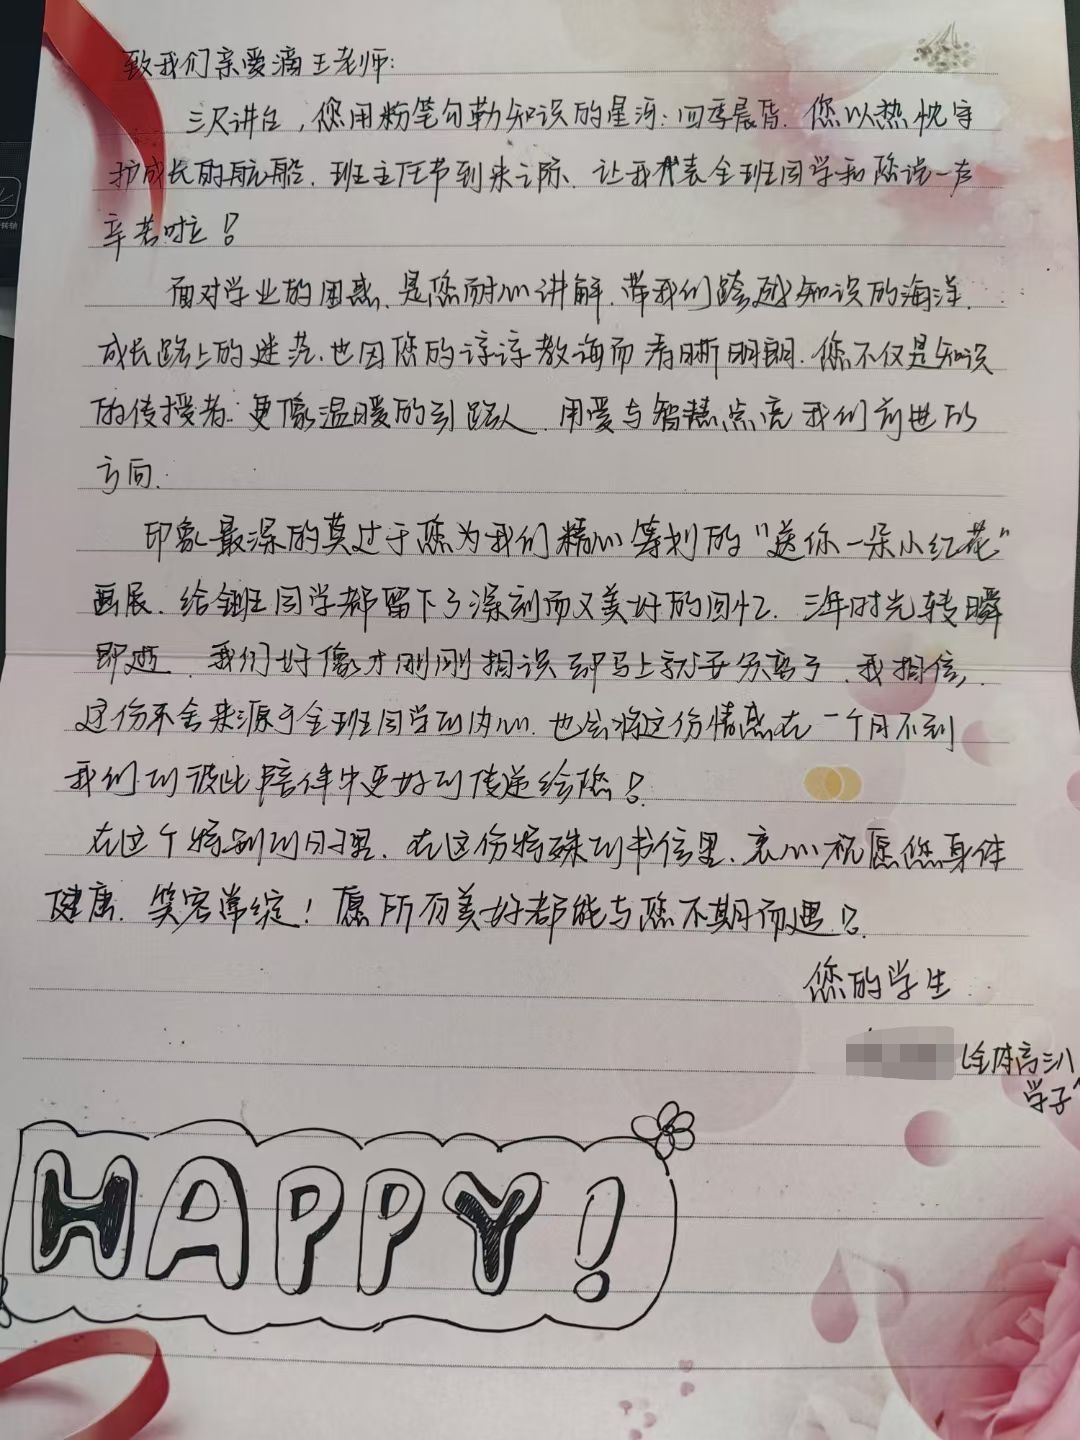 致我们亲爱滴王老师:
三尺讲台,您用粉笔勾勒知识的星河;四季晨昏.您以热忱守
护成长的航船.班主任节到来之际.让我代表全班同学和您说一声
辛苦啦!
面对学业的困惑.是您耐心讲解.带我们跨越知识的海洋.
成长路上的迷茫.也因您的谆谆教诲而看晰明朗.您不仅是知识
的传授者.更像温暖的引路人.用爱与智慧点亮我们前进的
方向.
印象最深的莫过于您为我们精心筹划的"送你一朵小红花"
画展.给全班同学都留下了深刻而又美好的回忆.三年时光转瞬
即逝.我们好像才刚刚相识却马上就要分离了.我相信,
这份不舍来源于全班同学的内心.也会将这份情感在一个月不到
我们的彼此陪伴中更好的传递给您!
在这个特别的日子里.在这份特殊的书信里.衷心祝愿您身体
健康.笑容常绽!愿所有美好都能与您不期而遇!
您的学生
(全体高三八
学子
HAPPY!